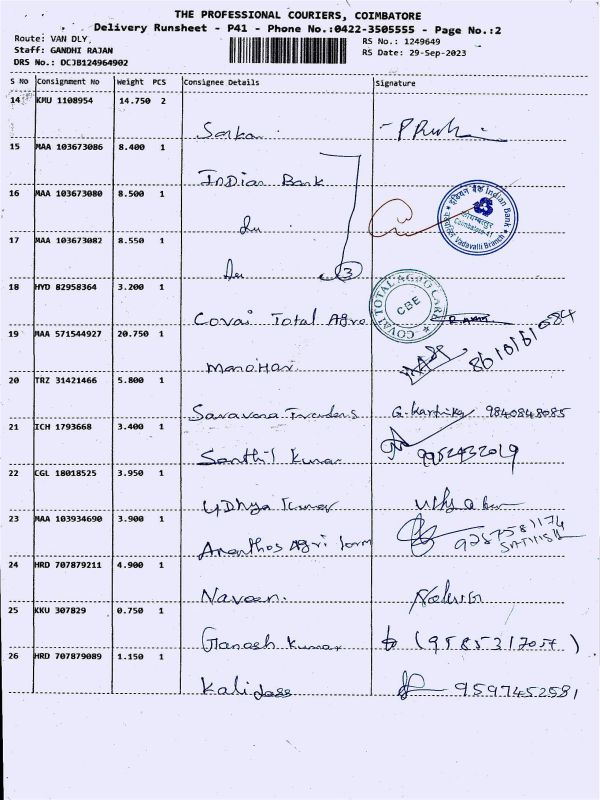 THE PROFESSIONAL COURIERS, COIMBATORE
Delivery Runsheet - P41 - Phone No.:0422-3505555 - Page No.:2
Route: VAN DLY,
Staff: GANDHI RAJAN
DRS No.: DCJB124964902
RS No.: 1249649
RS Date: 29-Sep-2023
S No Consignment No Weight PCS Consignee Details Signature
14 KMU 1108954 14.750 2
15 MAA 103673086 8.400 1
Indian Bank
16 MAA 103673080 8.500 1
17 MAA 103673082 8.550 1
3
इंडियन बैंक Indian Bank
कोयम्बत्तूर
Coimbatore-41
Vadavalli Branch
18 HYD 82958364 3.200 1
Covai Total Agro
COVAI TOTAL AGRO CARE
CBE
19 MAA 571544927 20.750 1
Manohar
20 TRZ 31421466 5.800 1
Saravana Traders G. Karthika 9840848085
21 ICH 1793668 3.400 1
Senthil Kumar 9952432019
22 CGL 18018525 3.950 1
Udhya Kumar
23 MAA 103934690 3.900 1
24 HRD 707879211 4.900 1
Naveen.
25 KKU 307829 0.750 1
Ganesh Kumar
26 HRD 707879089 1.150 1
Kalidass 9597452581